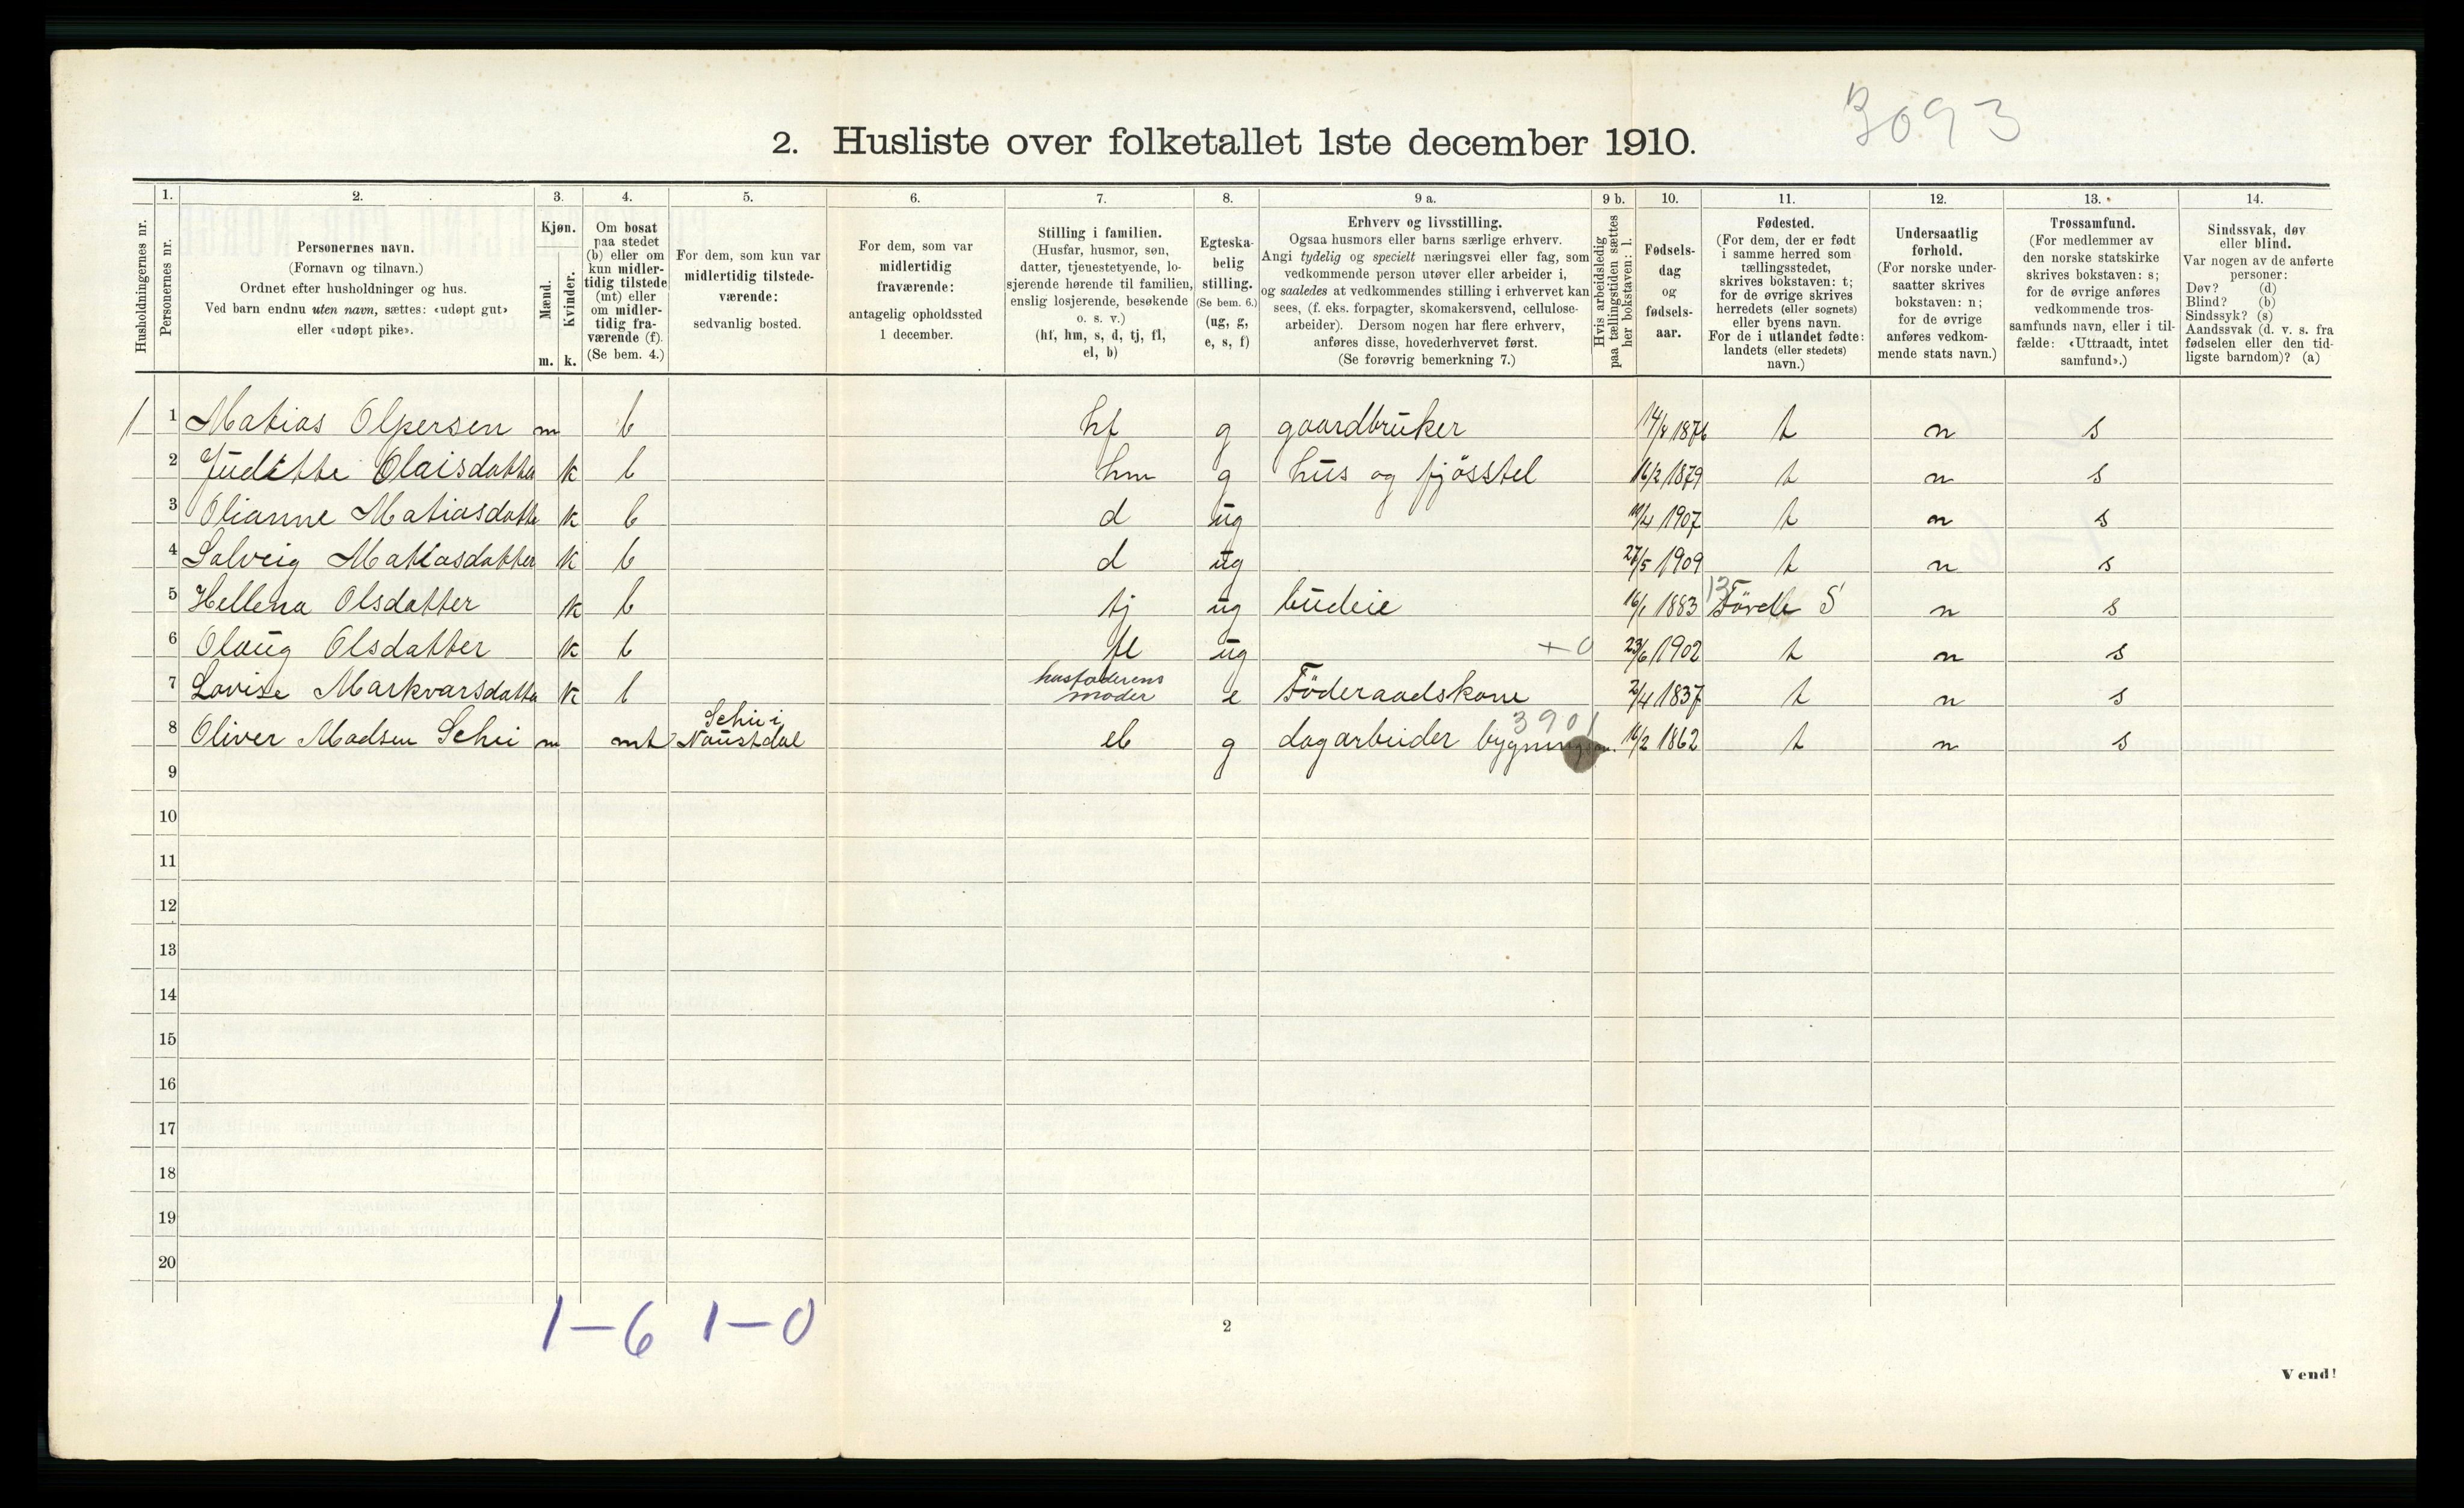 3093
2. Husliste over folketallet 1ste december 1910.
Husholdningernes nr.
1.
Personernes nr.
2.
Personernes navn.
(Fornavn og tilnavn.)
Ordnet efter husholdninger og hus.
Ved barn endnu uten navn, sættes: «udøpt gut»
eller «udøpt pike».
3.
Kjøn.
Mænd.
Kvinder.
m. k.
4.
Om bosat
paa stedet
(b) eller om
kun midler-
tidig tilstede
(mt) eller
om midler-
tidig fra-
værende (f).
(Se bem. 4.)
5.
For dem, som kun var
midlertidig tilstede-
værende:
sedvanlig bosted.
6.
For dem, som var
midlertidig
fraværende:
antagelig opholdssted
1 december.
7.
Stilling i familien.
(Husfar, husmor, søn,
datter, tjenestetyende, lo-
sjerende hørende til familien,
enslig losjerende, besøkende
o. s. v.)
(hf, hm, s, d, tj, fl,
el, b)
8.
Egteska-
belig
stilling.
(Se bem. 6.)
(ug, g,
e, s, f)
9 a.
Erhverv og livsstilling.
Ogsaa husmors eller barns særlige erhverv.
Angi tydelig og specielt næringsvei eller fag, som
vedkommende person utøver eller arbeider i,
og saaledes at vedkommendes stilling i erhvervet kan
sees, (f. eks. forpagter, skomakersvend, cellulose-
arbeider). Dersom nogen har flere erhverv,
anføres disse, hovederhvervet først.
(Se forøvrig bemerkning 7.)
9 b.
Hvis arbeidsledig
paa tællingstiden sættes
her bokstaven: l.
10.
Fødsels-
dag
og
fødsels-
aar.
11.
Fødested.
(For dem, der er født
i samme herred som
tællingsstedet,
skrives bokstaven: t;
for de øvrige skrives
herredets (eller sognets)
eller byens navn.
For de i utlandet fødte:
landets (eller stedets)
navn.)
12.
Undersaatlig
forhold.
(For norske under-
saatter skrives
bokstaven: n;
for de øvrige
anføres vedkom-
mende stats navn.)
13.
Trossamfund.
(For medlemmer av
den norske statskirke
skrives bokstaven: s;
for de øvrige anføres
vedkommende tros-
samfunds navn, eller i til-
fælde: «Uttraadt, intet
samfund».)
14.
Sindssvak, døv
eller blind.
Var nogen av de anførte
personer:
Døv? (d)
Blind? (b)
Sindssyk? (s)
Aandssvak (d. v. s. fra
fødselen eller den tid-
ligste barndom)? (a)
1 1 Matias Olpersen m b hf g gaardbruker 14/8 1876 t n s
2 Juditte Olaisdatter k b hm g hus og fjösstel 16/2 1879 t n s
3 Olianne Matiasdatte k b d ug 1907 t n s
4 Salveig Matiasdatter k b d ug 27/5 1909 t n s
5 Hellena Olsdatter k b tj ug budeie 16/1 1883 13 Förde S n s
6 Olaug Olsdatter k b fl ug +0 23/6 1902 t n s
7 Lovise Markvarsdatte k b husfaderens moder e Föderaadskone 2/4 1837 t n s
8 Oliver Madsen m mt Naustdal el g dagarbeider 3901 16/2 1862 t n s
9
10
11
12
13
14
15
16
17
18
19
20
1-6 1-0
2
Vend!